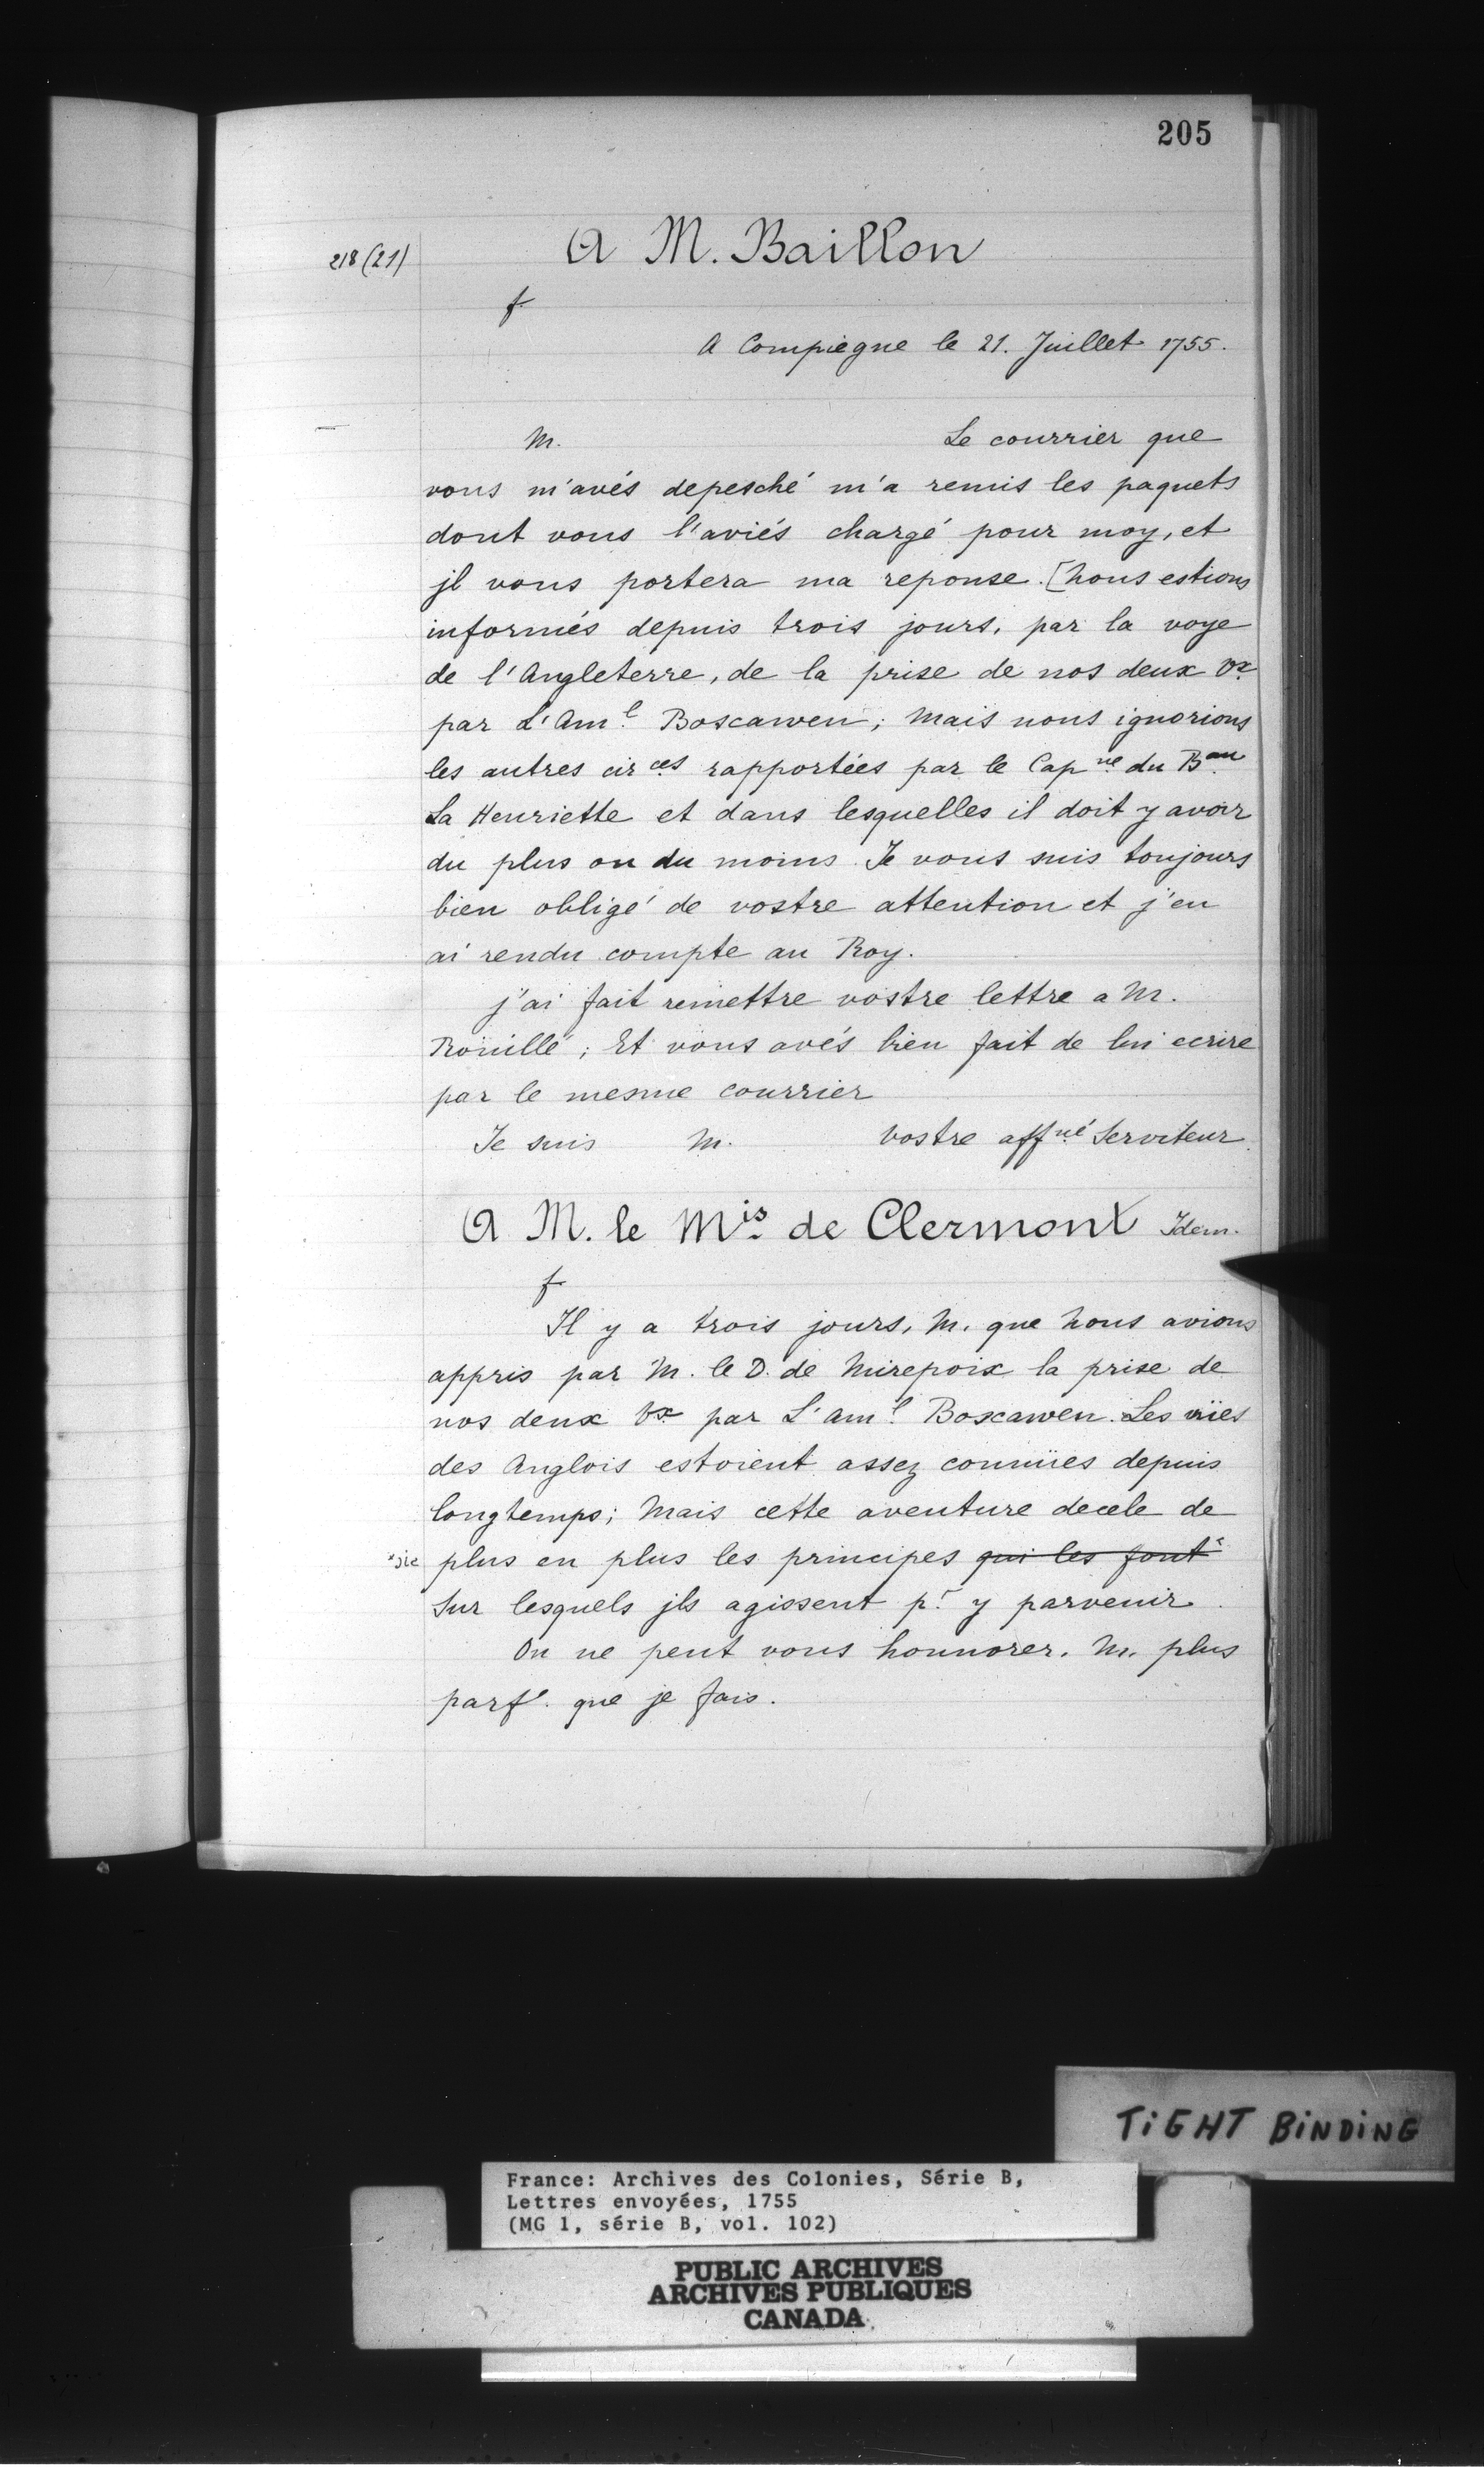 205
218 (21)
A M. Baillon
f
A Compiegne le 21. Juillet 1755.
M. Le courrier que
vous m'avés depesché m'a remis les paquets
dont vous l'aviés chargé pour moy, et
jl vous portera ma reponse. [Nous estions
informés depuis trois jours, par la voye
de l'Angleterre, de la prise de nos deux Vx
par L'Aml Boscawen; Mais nous ignorions
les autres circes rapportées par le Capne du Bau
La Henriette et dans lesquelles il doit y avoir
du plus ou du moins. Je vous suis toujours
bien obligé de vostre attention et j'en
ai rendu compte au Roy.
j'ai fait remettre vostre lettre a M.
Roüillé; Et vous avés bien fait de lui ecrire
par le mesme courrier
Je suis M. Vostre affné Serviteur.
A M. le Mis de Clermont Idem.
f
Il y a trois jours, M. que Nous avions
appris par M. le D. de Mirepoix la prise de
nos deux Vx par L'aml Boscawen. Les vües
des Anglois estoient assez connües depuis
longtemps; Mais cette aventure decele de
*sic plus en plus les principes qui les font*
Sur lesquels jls agissent pr y parvenir.
On ne peut vous honnorer. M. plus
parft. que je fais.
TiGHT BiNDiNG
France: Archives des Colonies, Série B,
Lettres envoyées, 1755
(MG 1, série B, vol. 102)
PUBLIC ARCHIVES
ARCHIVES PUBLIQUES
CANADA